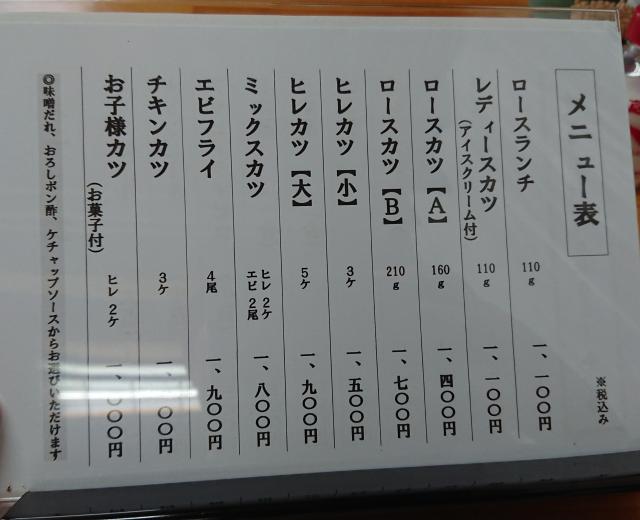 メニュー表
※税込み
ロースランチ 110g 一、一〇〇円
レディースカツ (アイスクリーム付) 110g 一、一〇〇円
ロースカツ【A】 160g 一、四〇〇円
ロースカツ【B】 210g 一、七〇〇円
ヒレカツ【小】 3ケ 一、五〇〇円
ヒレカツ【大】 5ケ 一、九〇〇円
ミックスカツ ヒレ2ケ エビ2尾 一、八〇〇円
エビフライ 4尾 一、九〇〇円
チキンカツ 3ケ
お子様カツ (お菓子付) ヒレ2ケ 一、〇〇〇円
◎味噌だれ、おろしポン酢、ケチャップソースからお選びいただけます